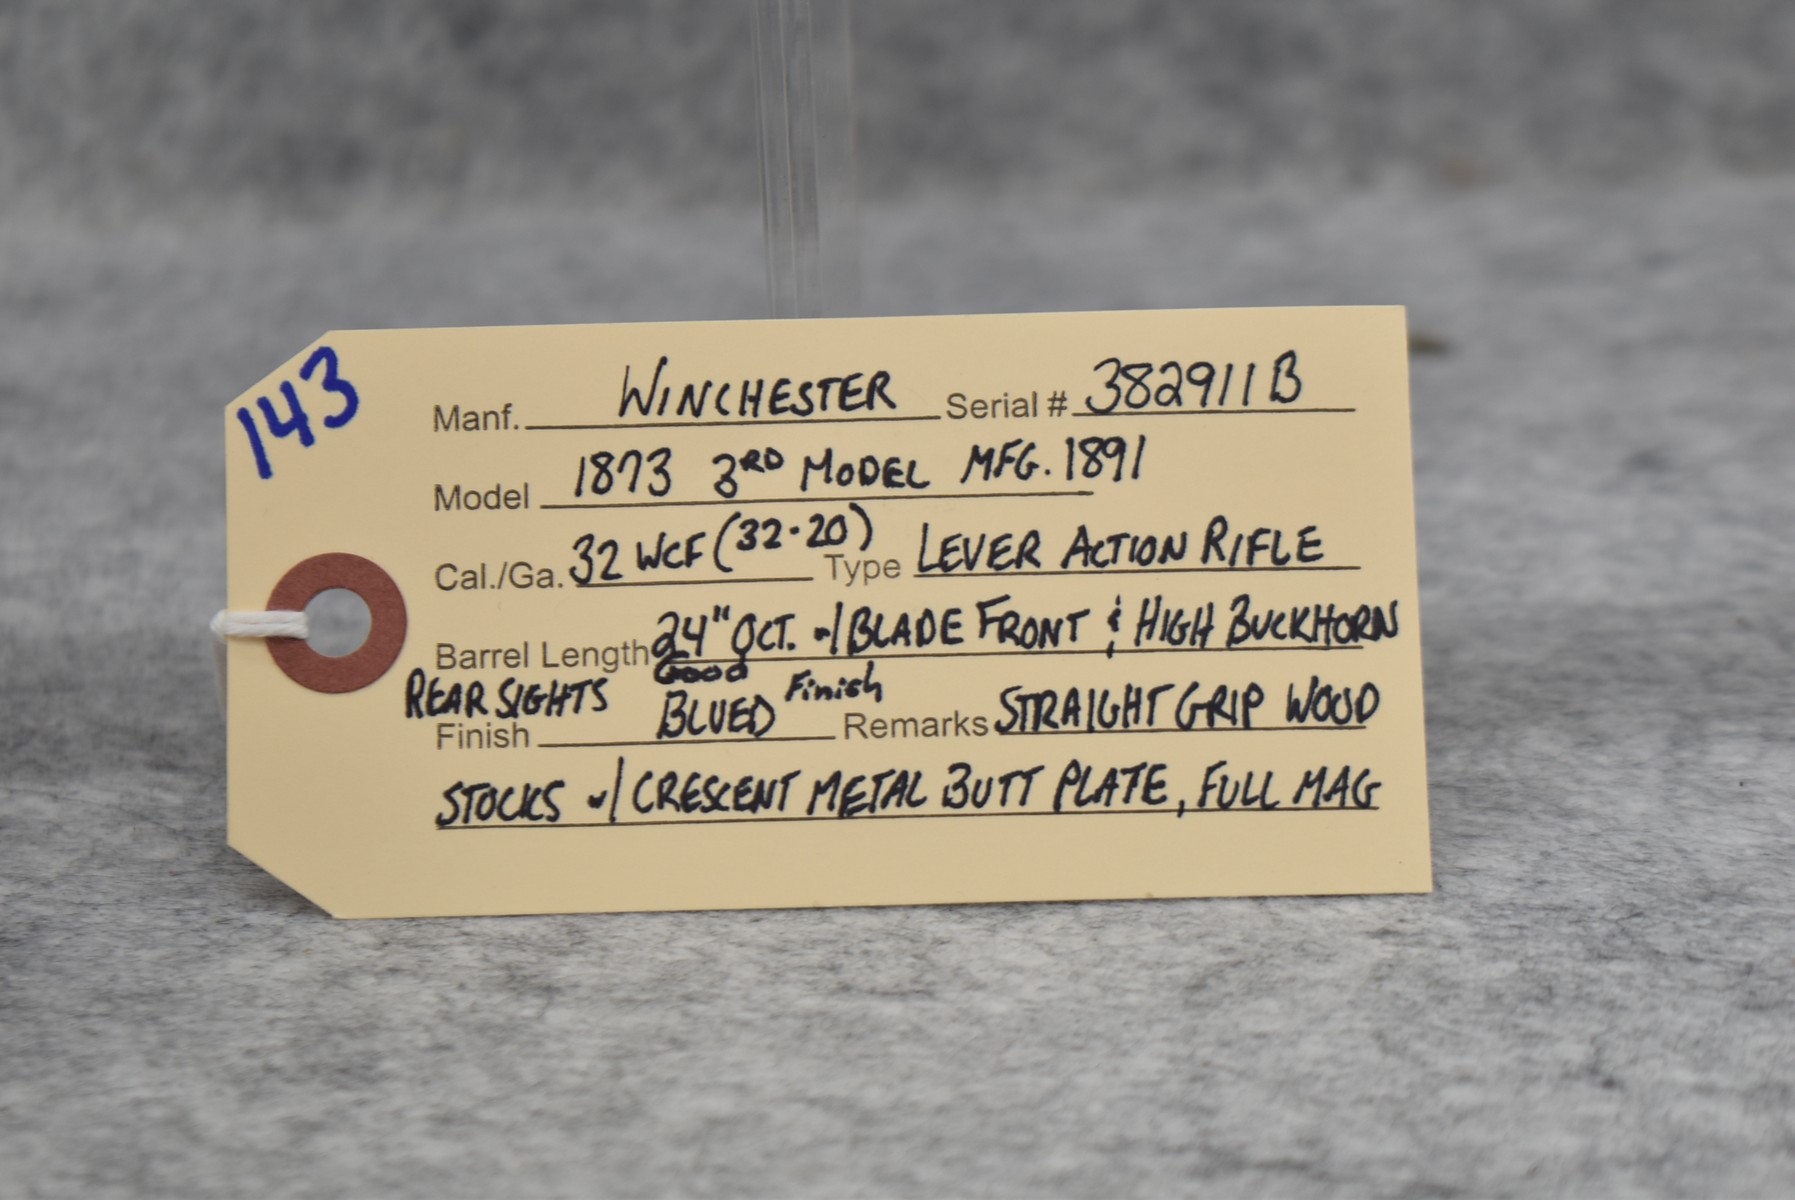 143
Manf. WINCHESTER Serial # 382911B
Model 1873 3RD MODEL MFG. 1891
Cal./Ga. 32 WCF (32-20) Type LEVER ACTION RIFLE
Barrel Length 24" OCT. w/ BLADE FRONT & HIGH BUCKHORN
REAR SIGHTS Good
Finish BLUED Finish Remarks STRAIGHT GRIP WOOD
STOCKS w/ CRESCENT METAL BUTT PLATE, FULL MAG